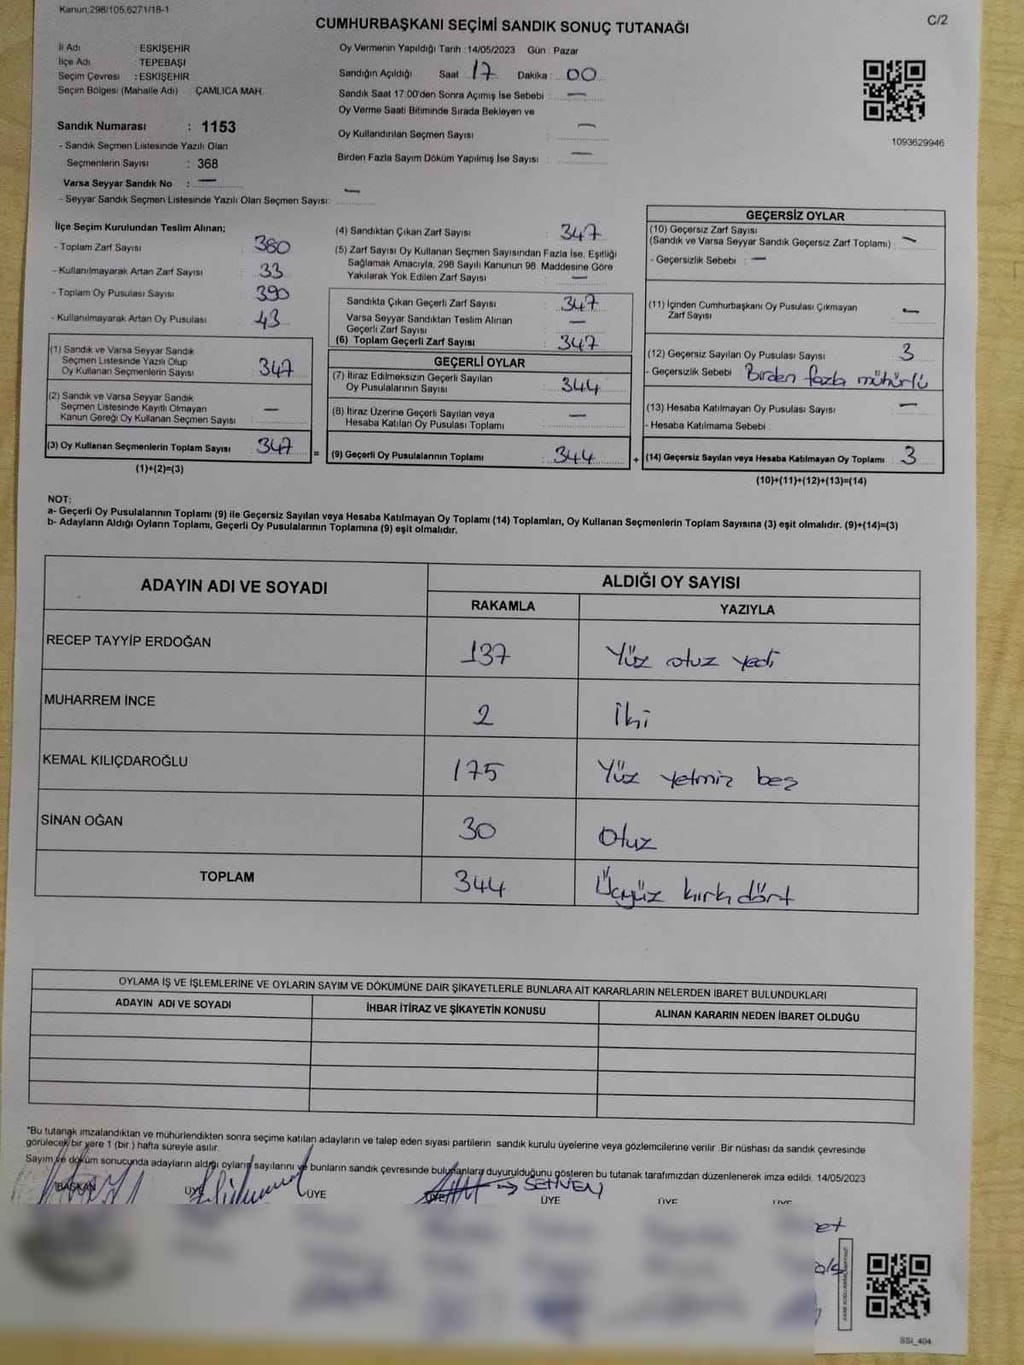 Kanun:298/105,6271/18-1
C/2
CUMHURBAŞKANI SEÇİMİ SANDIK SONUÇ TUTANAĞI
İl Adı : ESKİŞEHİR
İlçe Adı : TEPEBAŞI
Seçim Çevresi : ESKİŞEHİR
Seçim Bölgesi (Mahalle Adı) ÇAMLICA MAH.
Sandık Numarası : 1153
- Sandık Seçmen Listesinde Yazılı Olan
Seçmenlerin Sayısı : 368
Varsa Seyyar Sandık No : —
- Seyyar Sandık Seçmen Listesinde Yazılı Olan Seçmen Sayısı: —
Oy Vermenin Yapıldığı Tarih : 14/05/2023 Gün : Pazar
Sandığın Açıldığı Saat 17 Dakika : 00
Sandık Saat 17:00'den Sonra Açımış İse Sebebi : —
Oy Verme Saati Bitiminde Sırada Bekleyen ve
Oy Kullandırılan Seçmen Sayısı : —
Birden Fazla Sayım Döküm Yapılmış İse Sayısı : —
1093629946
İlçe Seçim Kurulundan Teslim Alınan;
- Toplam Zarf Sayısı : 380
- Kullanılmayarak Artan Zarf Sayısı : 33
- Toplam Oy Pusulası Sayısı : 390
- Kullanılmayarak Artan Oy Pusulası : 43
(1) Sandık ve Varsa Seyyar Sandık
Seçmen Listesinde Yazılı Olup
Oy Kullanan Seçmenlerin Sayısı : 347
(2) Sandık ve Varsa Seyyar Sandık
Seçmen Listesinde Kayıtlı Olmayan
Kanun Gereği Oy Kullanan Seçmen Sayısı : —
(3) Oy Kullanan Seçmenlerin Toplam Sayısı : 347
(1)+(2)=(3)
(4) Sandıktan Çıkan Zarf Sayısı : 347
(5) Zarf Sayısı Oy Kullanan Seçmen Sayısından Fazla İse, Eşitliği
Sağlamak Amacıyla, 298 Sayılı Kanunun 98. Maddesine Göre
Yakılarak Yok Edilen Zarf Sayısı : —
Sandıkta Çıkan Geçerli Zarf Sayısı : 347
Varsa Seyyar Sandıktan Teslim Alınan
Geçerli Zarf Sayısı : —
(6) Toplam Geçerli Zarf Sayısı : 347
GEÇERLİ OYLAR
(7) İtiraz Edilmeksizin Geçerli Sayılan
Oy Pusulalarının Sayısı : 344
(8) İtiraz Üzerine Geçerli Sayılan veya
Hesaba Katılan Oy Pusulası Toplamı : —
= (9) Geçerli Oy Pusulalarının Toplamı : 344
GEÇERSİZ OYLAR
(10) Geçersiz Zarf Sayısı
(Sandık ve Varsa Seyyar Sandık Geçersiz Zarf Toplamı) : —
- Geçersizlik Sebebi : —
(11) İçinden Cumhurbaşkanı Oy Pusulası Çıkmayan
Zarf Sayısı : —
(12) Geçersiz Sayılan Oy Pusulası Sayısı : 3
- Geçersizlik Sebebi : Birden fazla mühürlü
(13) Hesaba Katılmayan Oy Pusulası Sayısı : —
- Hesaba Katılmama Sebebi :
+ (14) Geçersiz Sayılan veya Hesaba Katılmayan Oy Toplamı : 3
(10)+(11)+(12)+(13)=(14)
NOT:
a- Geçerli Oy Pusulalarının Toplamı (9) ile Geçersiz Sayılan veya Hesaba Katılmayan Oy Toplamı (14) Toplamları, Oy Kullanan Seçmenlerin Toplam Sayısına (3) eşit olmalıdır. (9)+(14)=(3)
b- Adayların Aldığı Oyların Toplamı, Geçerli Oy Pusulalarının Toplamına (9) eşit olmalıdır.
ADAYIN ADI VE SOYADI
ALDIĞI OY SAYISI
RAKAMLA YAZIYLA
RECEP TAYYİP ERDOĞAN 137 Yüz otuz yedi
MUHARREM İNCE 2 İki
KEMAL KILIÇDAROĞLU 175 Yüz yetmiz beş
SİNAN OĞAN 30 Otuz
TOPLAM 344 Üçyüz kırk dört
OYLAMA İŞ VE İŞLEMLERİNE VE OYLARIN SAYIM VE DÖKÜMÜNE DAİR ŞİKAYETLERLE BUNLARA AİT KARARLARIN NELERDEN İBARET BULUNDUKLARI
ADAYIN ADI VE SOYADI İHBAR İTİRAZ VE ŞİKAYETİN KONUSU ALINAN KARARIN NEDEN İBARET OLDUĞU
*Bu tutanak imzalandıktan ve mühürlendikten sonra seçime katılan adayların ve talep eden siyasi partilerin sandık kurulu üyelerine veya gözlemcilerine verilir. Bir nüshası da sandık çevresinde
görülecek bir yere 1 (bir) hafta süreyle asılır.
Sayım ve döküm sonucunda adayların aldığı oyların sayılarını ve bunların sandık çevresinde bulunanlara duyurulduğunu gösteren bu tutanak tarafımızdan düzenlenerek imza edildi. 14/05/2023
BAŞKAN ÜYE ÜYE → SEHVEN ÜYE ÜYE
SSI_404